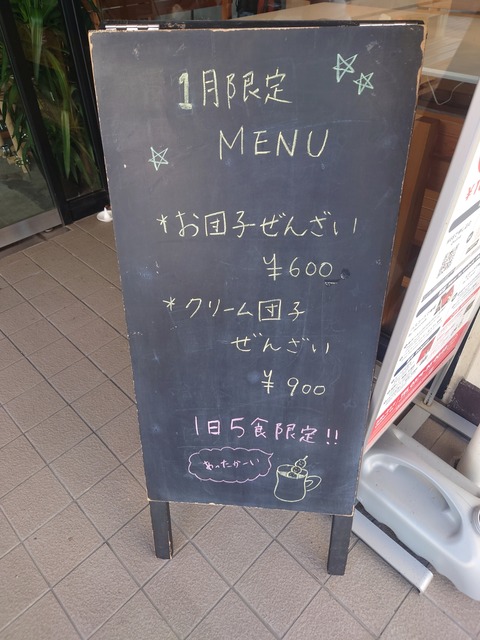 1月限定
MENU
*お団子ぜんざい
¥600
*クリーム団子
ぜんざい
¥900
1日5食限定!!
あったかーい